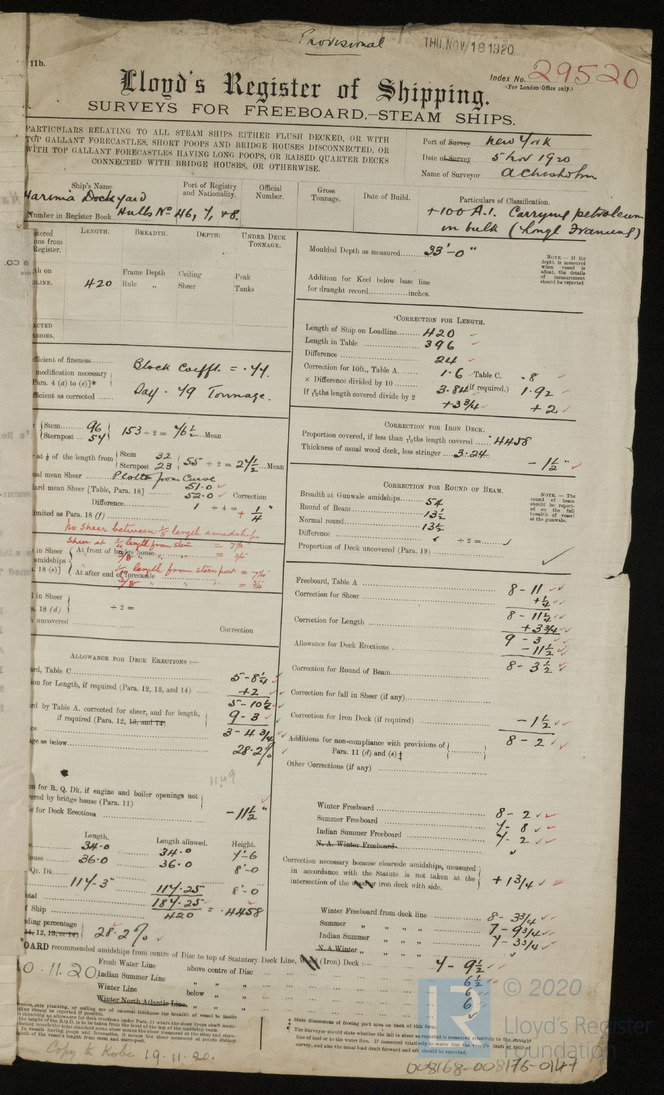 Provisional
THU. NOV 18 1920
11b.
Index No. 29520
(For London Office only.)
Lloyd's Register of Shipping.
SURVEYS FOR FREEBOARD.—STEAM SHIPS.
PARTICULARS RELATING TO ALL STEAM SHIPS EITHER FLUSH DECKED, OR WITH
TOP GALLANT FORECASTLES, SHORT POOPS AND BRIDGE HOUSES DISCONNECTED, OR
WITH TOP GALLANT FORECASTLES HAVING LONG POOPS, OR RAISED QUARTER DECKS
CONNECTED WITH BRIDGE HOUSES, OR OTHERWISE.
Port of Survey New York
Date of Survey 5 Nov 1920
Name of Surveyor A Chisholm
Ship's Name
Harima Dockyard
Number in Register Book Hulls No 46, 7, & 8
Port of Registry and Nationality.
Official Number.
Gross Tonnage.
Date of Build.
Particulars of Classification.
+100 A.1. Carrying petroleum
in bulk (Longl Framing)
LENGTH. BREADTH. DEPTH. UNDER DECK TONNAGE.
420
Frame Depth Ceiling Peak
Rule „ Sheer Tanks
Moulded Depth as measured 33'-0"
NOTE.—If the depth is measured when vessel is afloat, the details of measurement should be reported.
Addition for Keel below base line
for draught record inches.
CORRECTION FOR LENGTH.
Length of Ship on Loadline 420
Length in Table 396
Difference 24
Correction for 10ft., Table A. 1·6 Table C. ·8
× Difference divided by 10 3·84 (if required.) 1·92
If 6/10ths length covered divide by 2
+3 3/4 +2
efficient of fineness
modification necessary
Para. 4 (a) to (e)]*
efficient as corrected
Block Coefft. = ·77.
Day ·79 Tonnage.
CORRECTION FOR IRON DECK.
Proportion covered, if less than 7/10ths length covered ·4458
Thickness of usual wood deck, less stringer 3·24
— 1½"
Stem 96
Sternpost 57
153 ÷ 2 = 76½ Mean
at ⅛ of the length from Stem 32
Sternpost 23
55 ÷ 2 = 27½ Mean
ual mean Sheer Plotted from Curve 51·0
ard mean Sheer [Table, Para. 18] 52·0 Correction
Difference 1 ÷ 4 = + ¼
imited as Para. 18 (f)
No Sheer between ½ length amidships
CORRECTION FOR ROUND OF BEAM.
Breadth at Gunwale amidships 54
Round of Beam 13½
Normal round 13½
Difference ÷ 2 =
Proportion of Deck uncovered (Para. 19)
NOTE.—The round of beam should be reported on the full breadth of vessel at the gunwale.
in Sheer
amidships
. 18 (e)]
At front of bridge house
At after end of forecastle
l in Sheer
. 18 (d) ÷ 2 =
uncovered
Correction
Freeboard, Table A 8 - 11
Correction for Sheer +¼
8 - 11¼
Correction for Length + 3 3/4
9 - 3
Allowance for Deck Erections — 11½
8 - 3½
Correction for Round of Beam
Correction for fall in Sheer (if any)
Correction for Iron Deck (if required) — 1½
8 - 2
Additions for non-compliance with provisions of
Para. 11 (d) and (e)‡
Other Corrections (if any)
ALLOWANCE FOR DECK ERECTIONS :—
ard, Table C 5 - 8½
ion for Length, if required (Para. 12, 13, and 14) +2
5 - 10½
rd by Table A. corrected for sheer, and for length,
if required (Para. 12, 13, and 14) 9 - 3
ce 3 - 4 3/4
age as below 28·2%
11.49
on for R. Q. Dk. if engine and boiler openings not
ered by bridge house (Para. 11)
e for Deck Erections — 11½"
Length. Length allowed. Height.
34·0 34·0 7'-6
ouse 36·0 36·0 8'-0
Qr. Dk.
114·3" 117·25 8'-0
otal 187·25
f Ship 420 = ·4458
ding percentage
28·2%
Winter Freeboard 8 - 2
Summer Freeboard 7 - 8
Indian Summer Freeboard 7 - 2
N. A. Winter Freeboard
Correction necessary because clearside amidships, measured
in accordance with the Statute is not taken at the
intersection of the iron deck with side.
+ 1 3/4
Winter Freeboard from deck line 8 - 3 3/4
Summer „ „ „ „ 7 - 9 3/4
Indian Summer „ „ „ 7 - 3 3/4
N.A. Winter „ „ „
OARD recommended amidships from centre of Disc to top of Statutory Deck Line, (Iron) Deck :— 7 - 9½
0.11.20
Fresh Water Line above centre of Disc 6½
Indian Summer Line „ „ 6
Winter Line below „ 6
Winter North Atlantic Line „ „
State dimensions of freeing port area on back of this form.
The Surveyor should state whether the fall in sheer as reported is measured relatively to the straight
line of keel or to the water line.
Copy to Kobe 19.11.20.
© 2020
Lloyd's Register
Foundation
008168-008176-0147